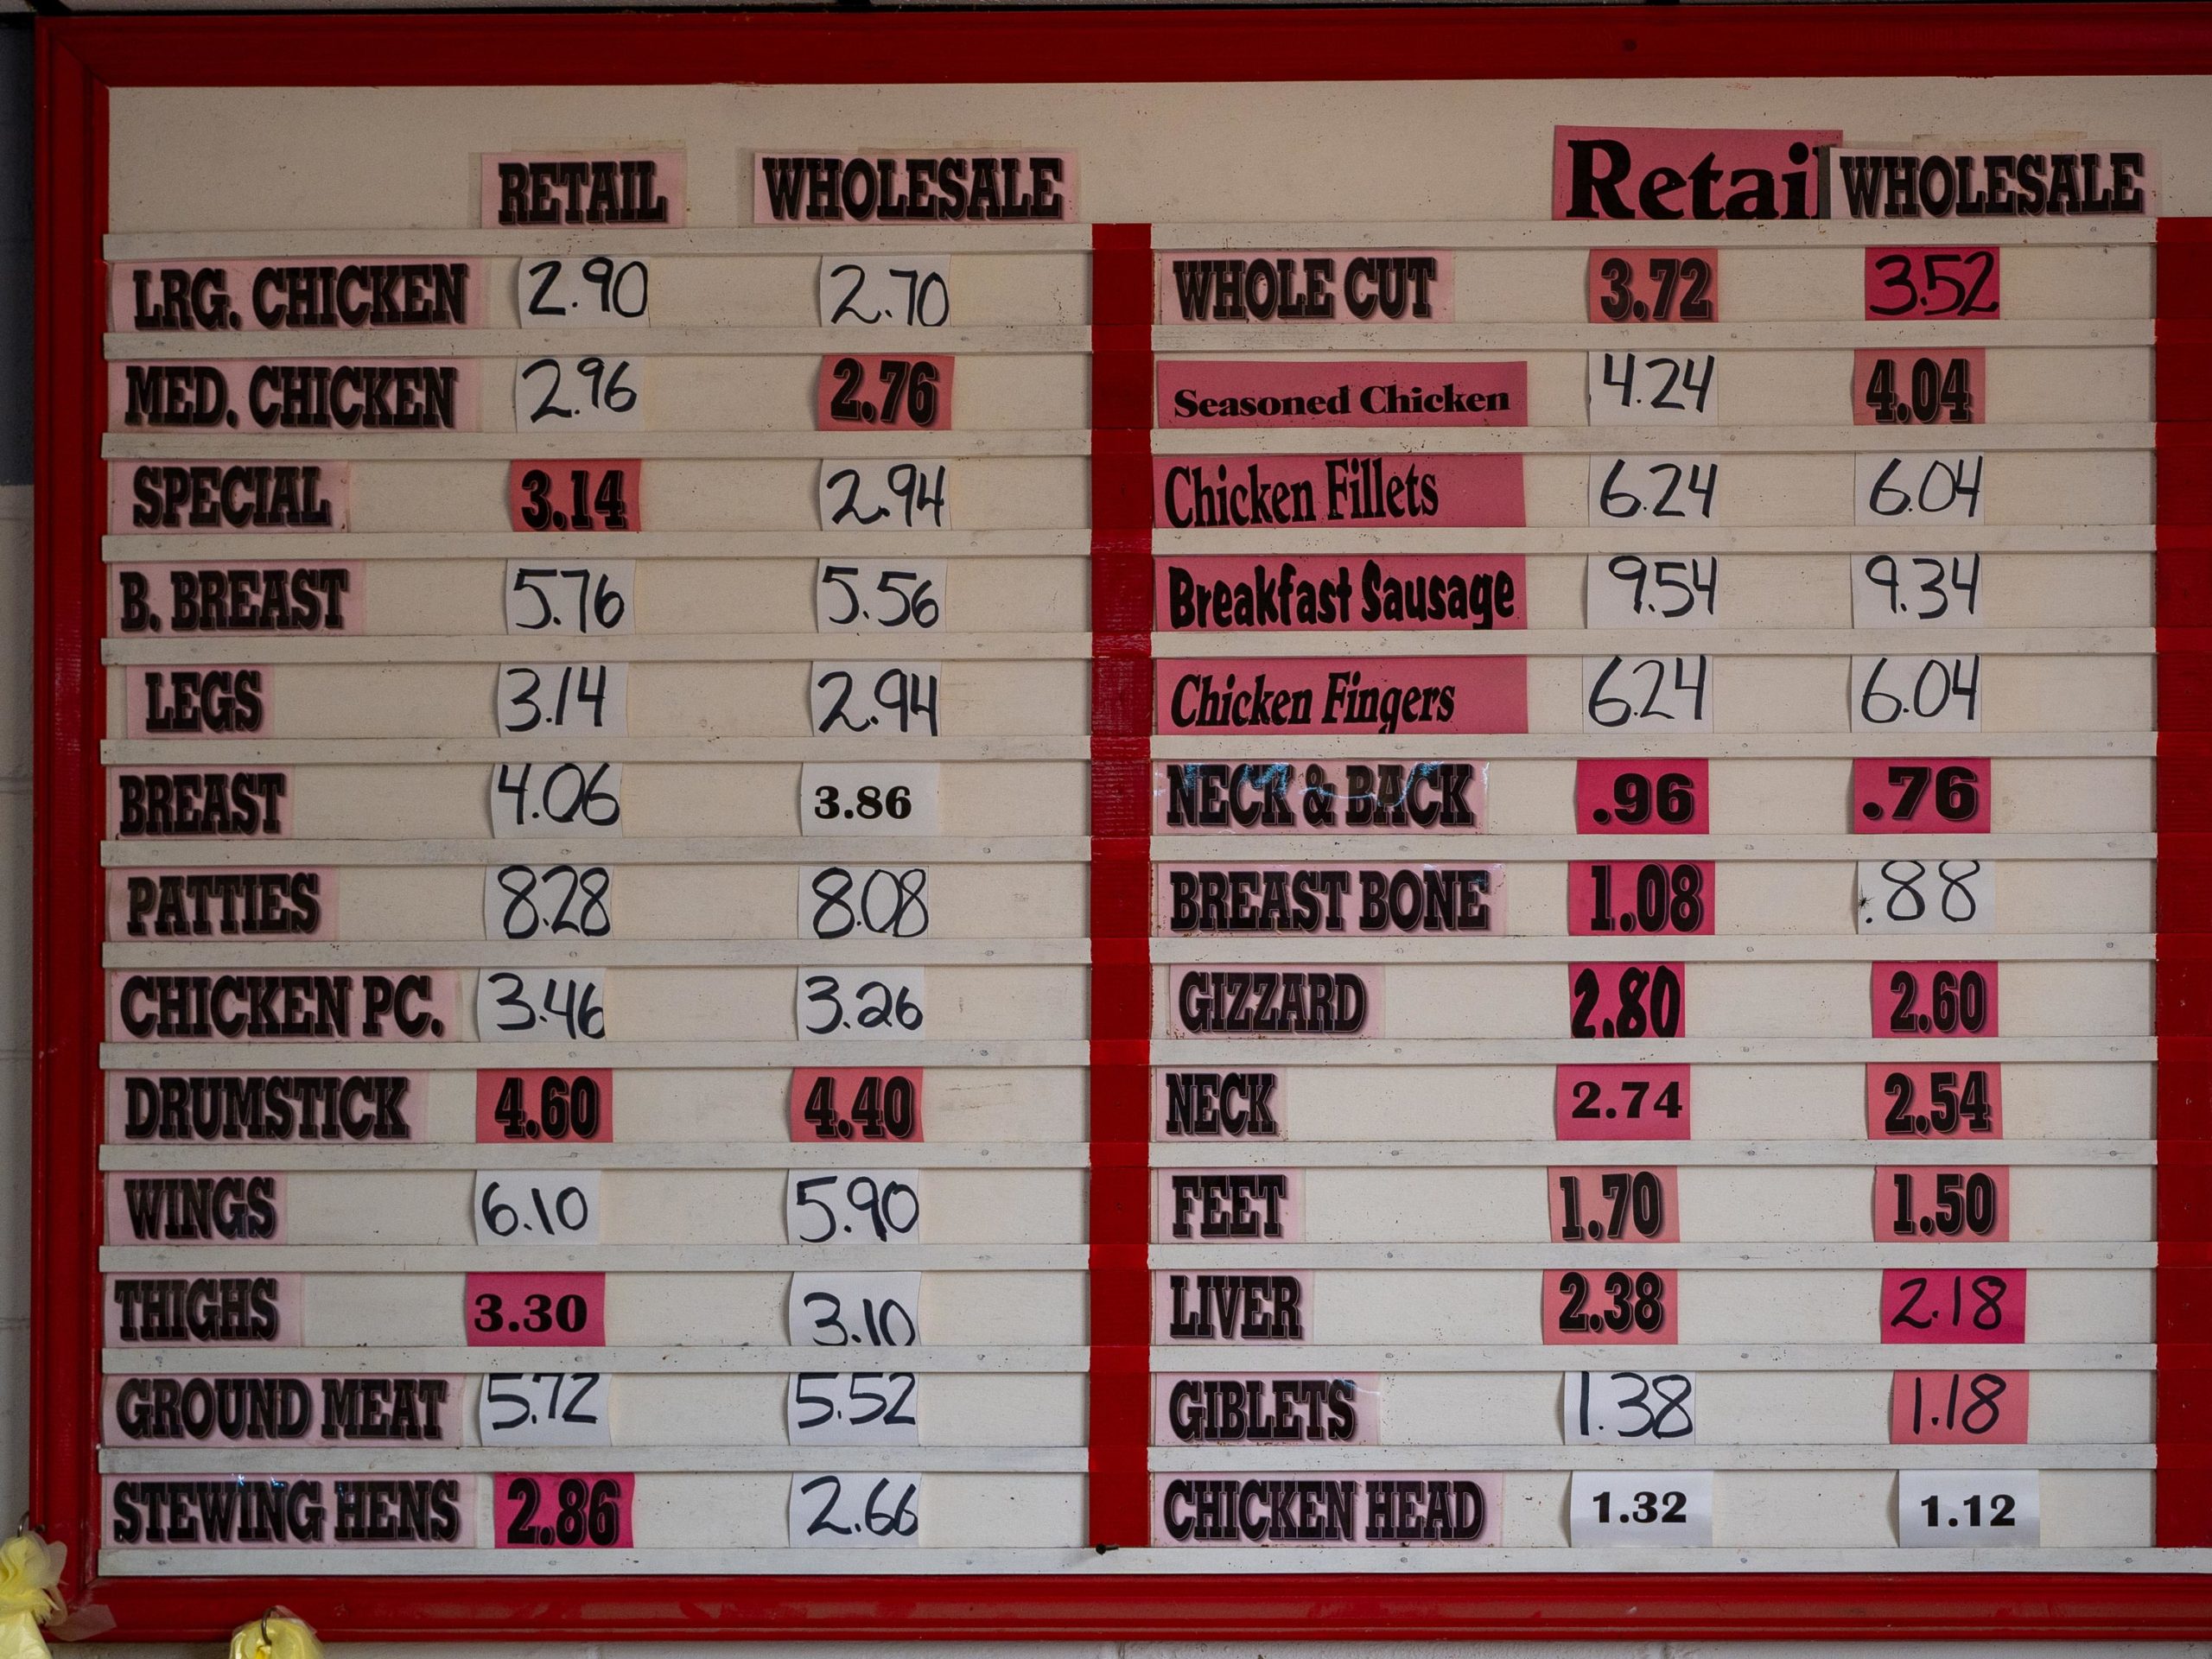 RETAIL WHOLESALE
LRG. CHICKEN 2.90 2.70
MED. CHICKEN 2.96 2.76
SPECIAL 3.14 2.94
B. BREAST 5.76 5.56
LEGS 3.14 2.94
BREAST 4.06 3.86
PATTIES 8.28 8.08
CHICKEN PC. 3.46 3.26
DRUMSTICK 4.60 4.40
WINGS 6.10 5.90
THIGHS 3.30 3.10
GROUND MEAT 5.72 5.52
STEWING HENS 2.86 2.66
Retail WHOLESALE
WHOLE CUT 3.72 3.52
Seasoned Chicken 4.24 4.04
Chicken Fillets 6.24 6.04
Breakfast Sausage 9.54 9.34
Chicken Fingers 6.24 6.04
NECK & BACK .96 .76
BREAST BONE 1.08 .88
GIZZARD 2.80 2.60
NECK 2.74 2.54
FEET 1.70 1.50
LIVER 2.38 2.18
GIBLETS 1.38 1.18
CHICKEN HEAD 1.32 1.12